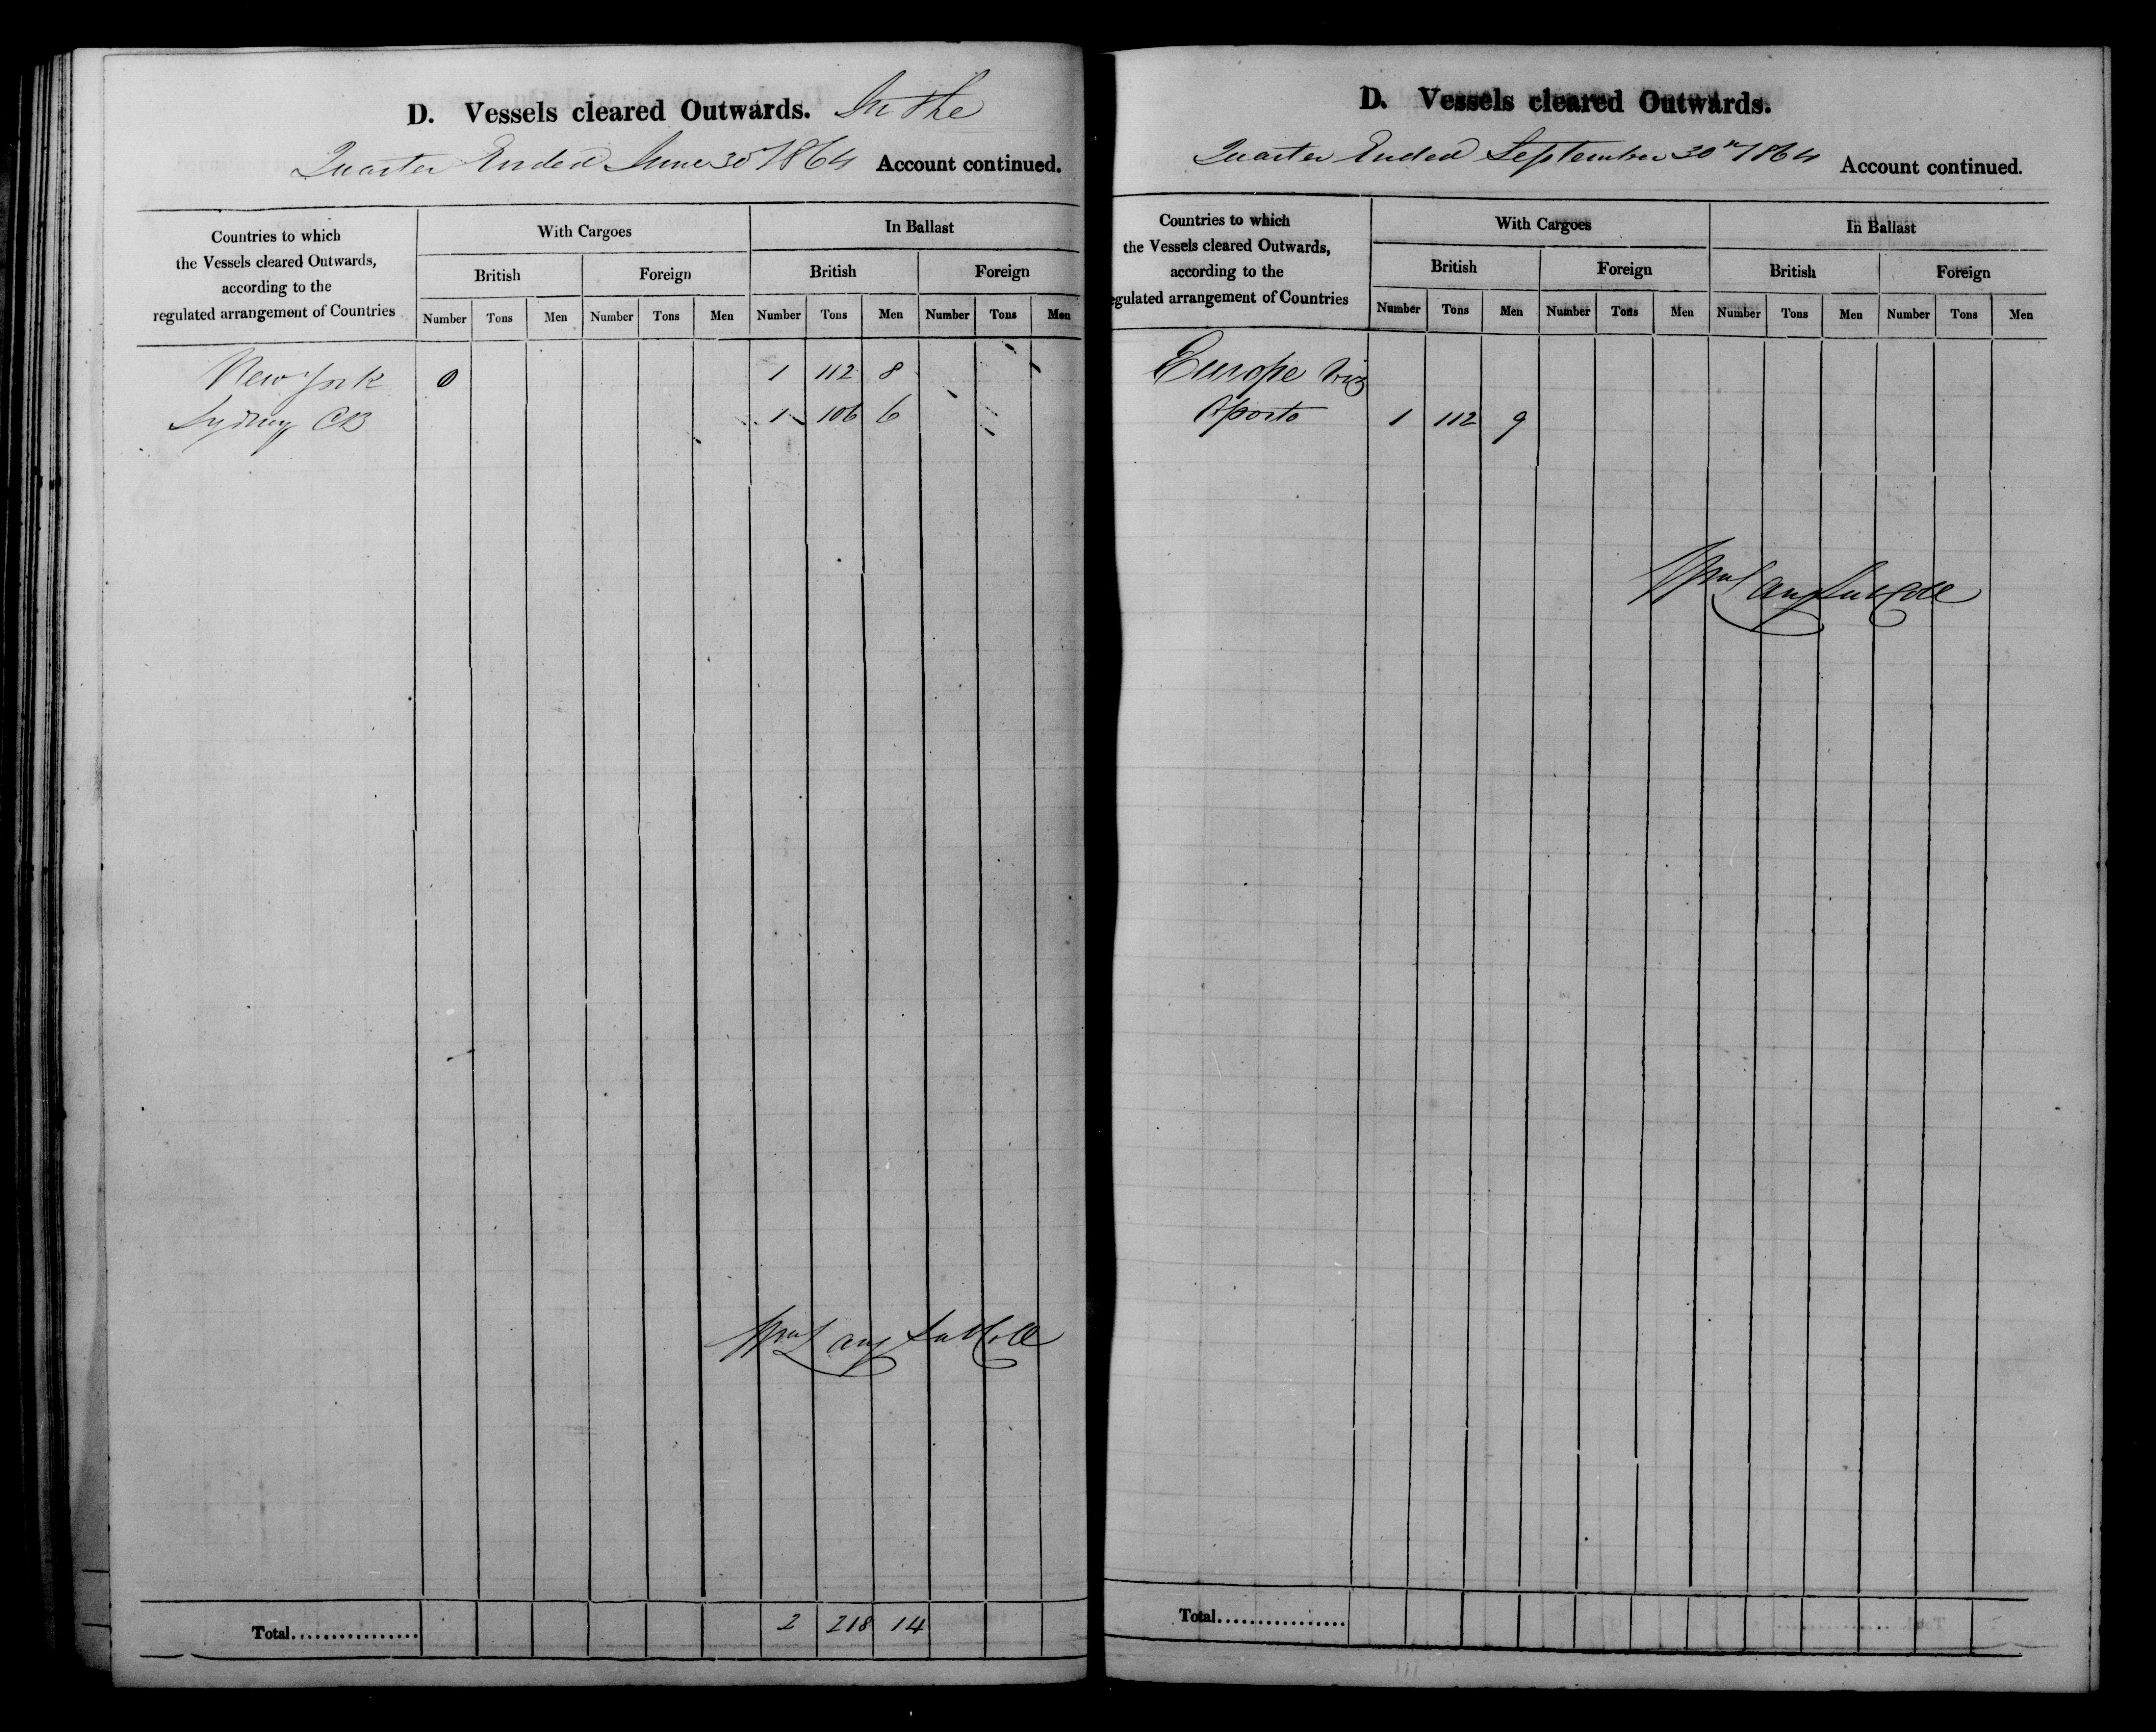 D. Vessels cleared Outwards. In the
Quarter Ended June 30 1864 Account continued.
Countries to which
the Vessels cleared Outwards,
according to the
regulated arrangement of Countries
With Cargoes In Ballast
British Foreign British Foreign
Number Tons Men Number Tons Men Number Tons Men Number Tons Men
New York 0 1 112 8
Sydney CB 1 106 6
Wm Lang Sub Coll
Total................ 2 218 14
D. Vessels cleared Outwards.
Quarter Ended September 30th 1864 Account continued.
Countries to which
the Vessels cleared Outwards,
according to the
egulated arrangement of Countries
With Cargoes In Ballast
British Foreign British Foreign
Number Tons Men Number Tons Men Number Tons Men Number Tons Men
Europe viz
Oporto 1 112 9
Wm Lang Sub Coll
Total................